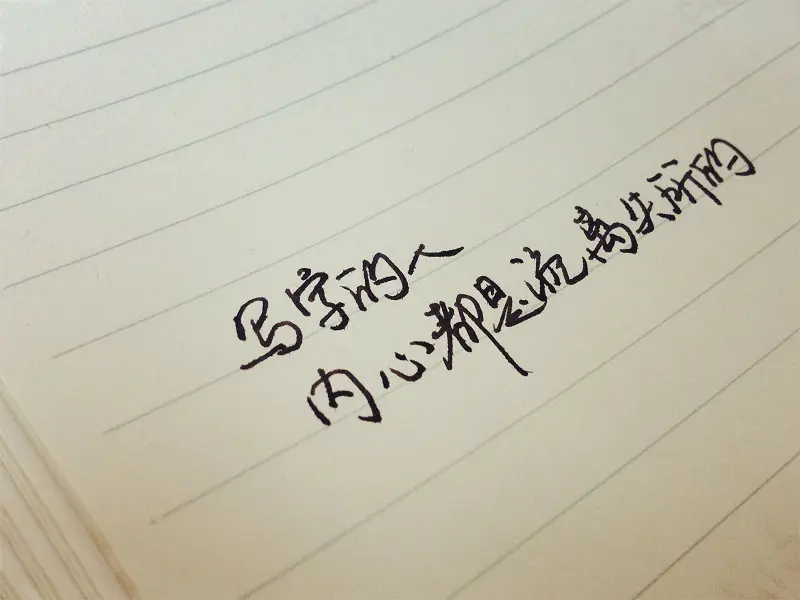 写字的人
内心都是流离失所的